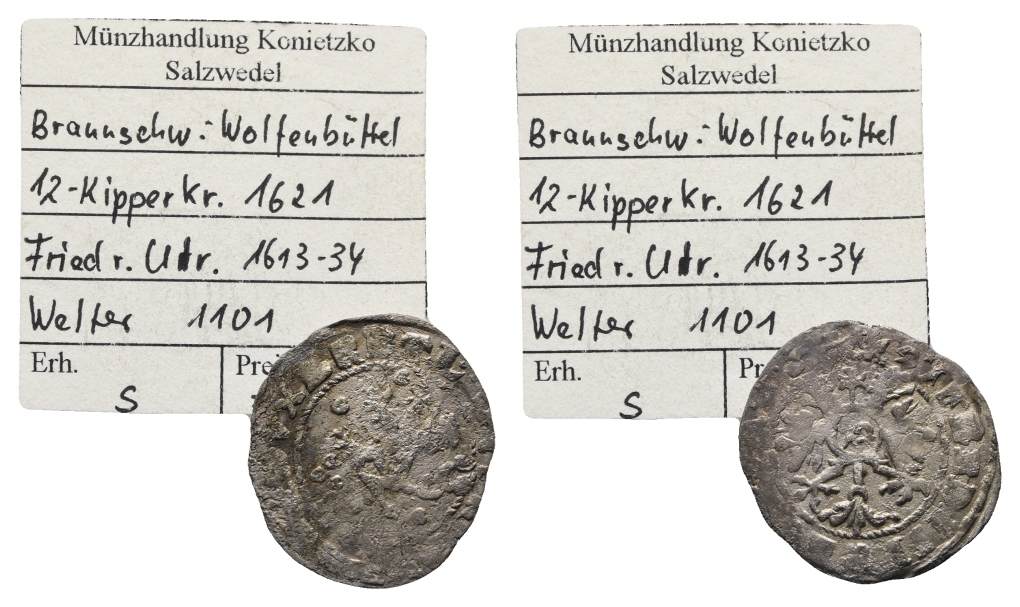 Münzhandlung Konietzko
Salzwedel
Braunschw.-Wolfenbüttel
12-Kipperkr. 1621
Friedr. Ulr. 1613-34
Welter 1101
Erh. Prei
S
Münzhandlung Konietzko
Salzwedel
Braunschw.-Wolfenbüttel
12-Kipperkr. 1621
Friedr. Ulr. 1613-34
Welter 1101
Erh. Pr
S